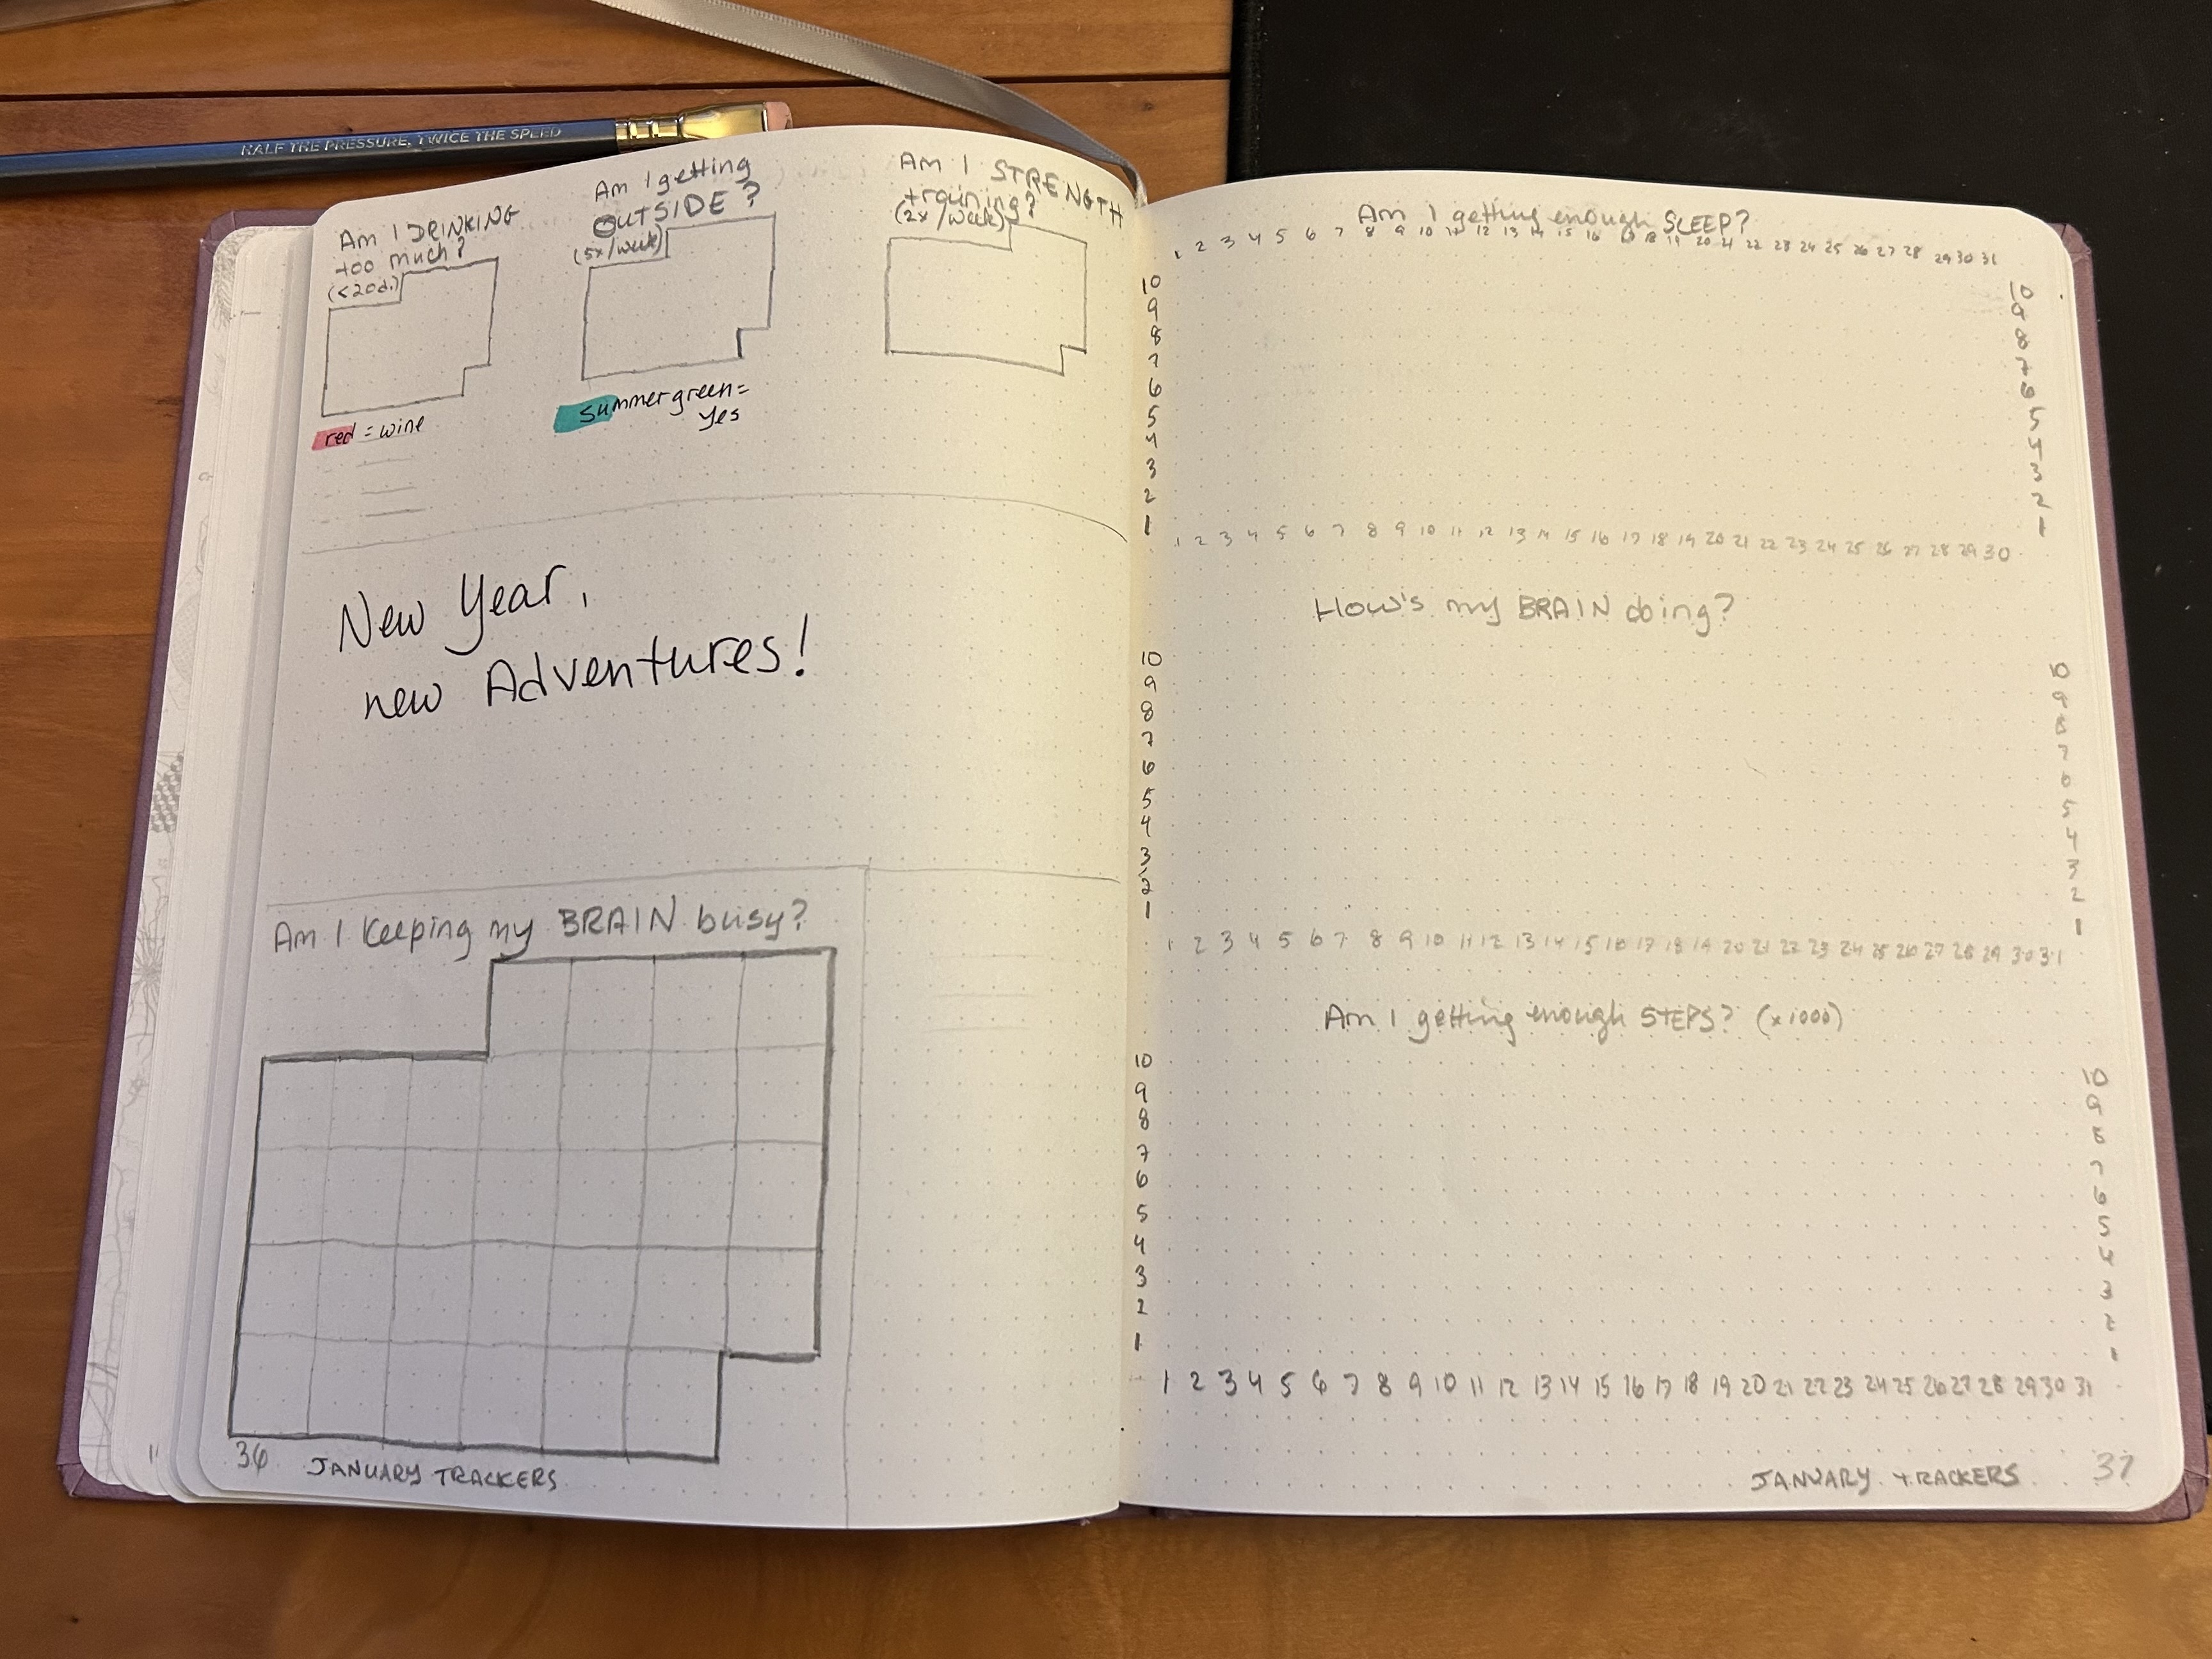 HALF THE PRESSURE, TWICE THE SPEED
Am I DRINKING
too much?
(<20d.)
red = wine
Am I getting
OUTSIDE?
(5x/week)
summer green =
yes
Am I STRENGTH
training?
(2x/week)
New Year,
new Adventures!
Am I keeping my BRAIN busy?
36 JANUARY TRACKERS
Am I getting enough SLEEP?
1 2 3 4 5 6 7 8 9 10 11 12 13 14 15 16 17 18 19 20 21 22 23 24 25 26 27 28 29 30 31
10 10
9 9
8 8
7 7
6 6
5 5
4 4
3 3
2 2
1 1
1 2 3 4 5 6 7 8 9 10 11 12 13 14 15 16 17 18 19 20 21 22 23 24 25 26 27 28 29 30
How's my BRAIN doing?
10 10
9 9
8 8
7 7
6 6
5 5
4 4
3 3
2 2
1 1
1 2 3 4 5 6 7 8 9 10 11 12 13 14 15 16 17 18 19 20 21 22 23 24 25 26 27 28 29 30 31
Am I getting enough STEPS? (x1000)
10 10
9 9
8 8
7 7
6 6
5 5
4 4
3 3
2 2
1 1
1 2 3 4 5 6 7 8 9 10 11 12 13 14 15 16 17 18 19 20 21 22 23 24 25 26 27 28 29 30 31
JANUARY TRACKERS 37